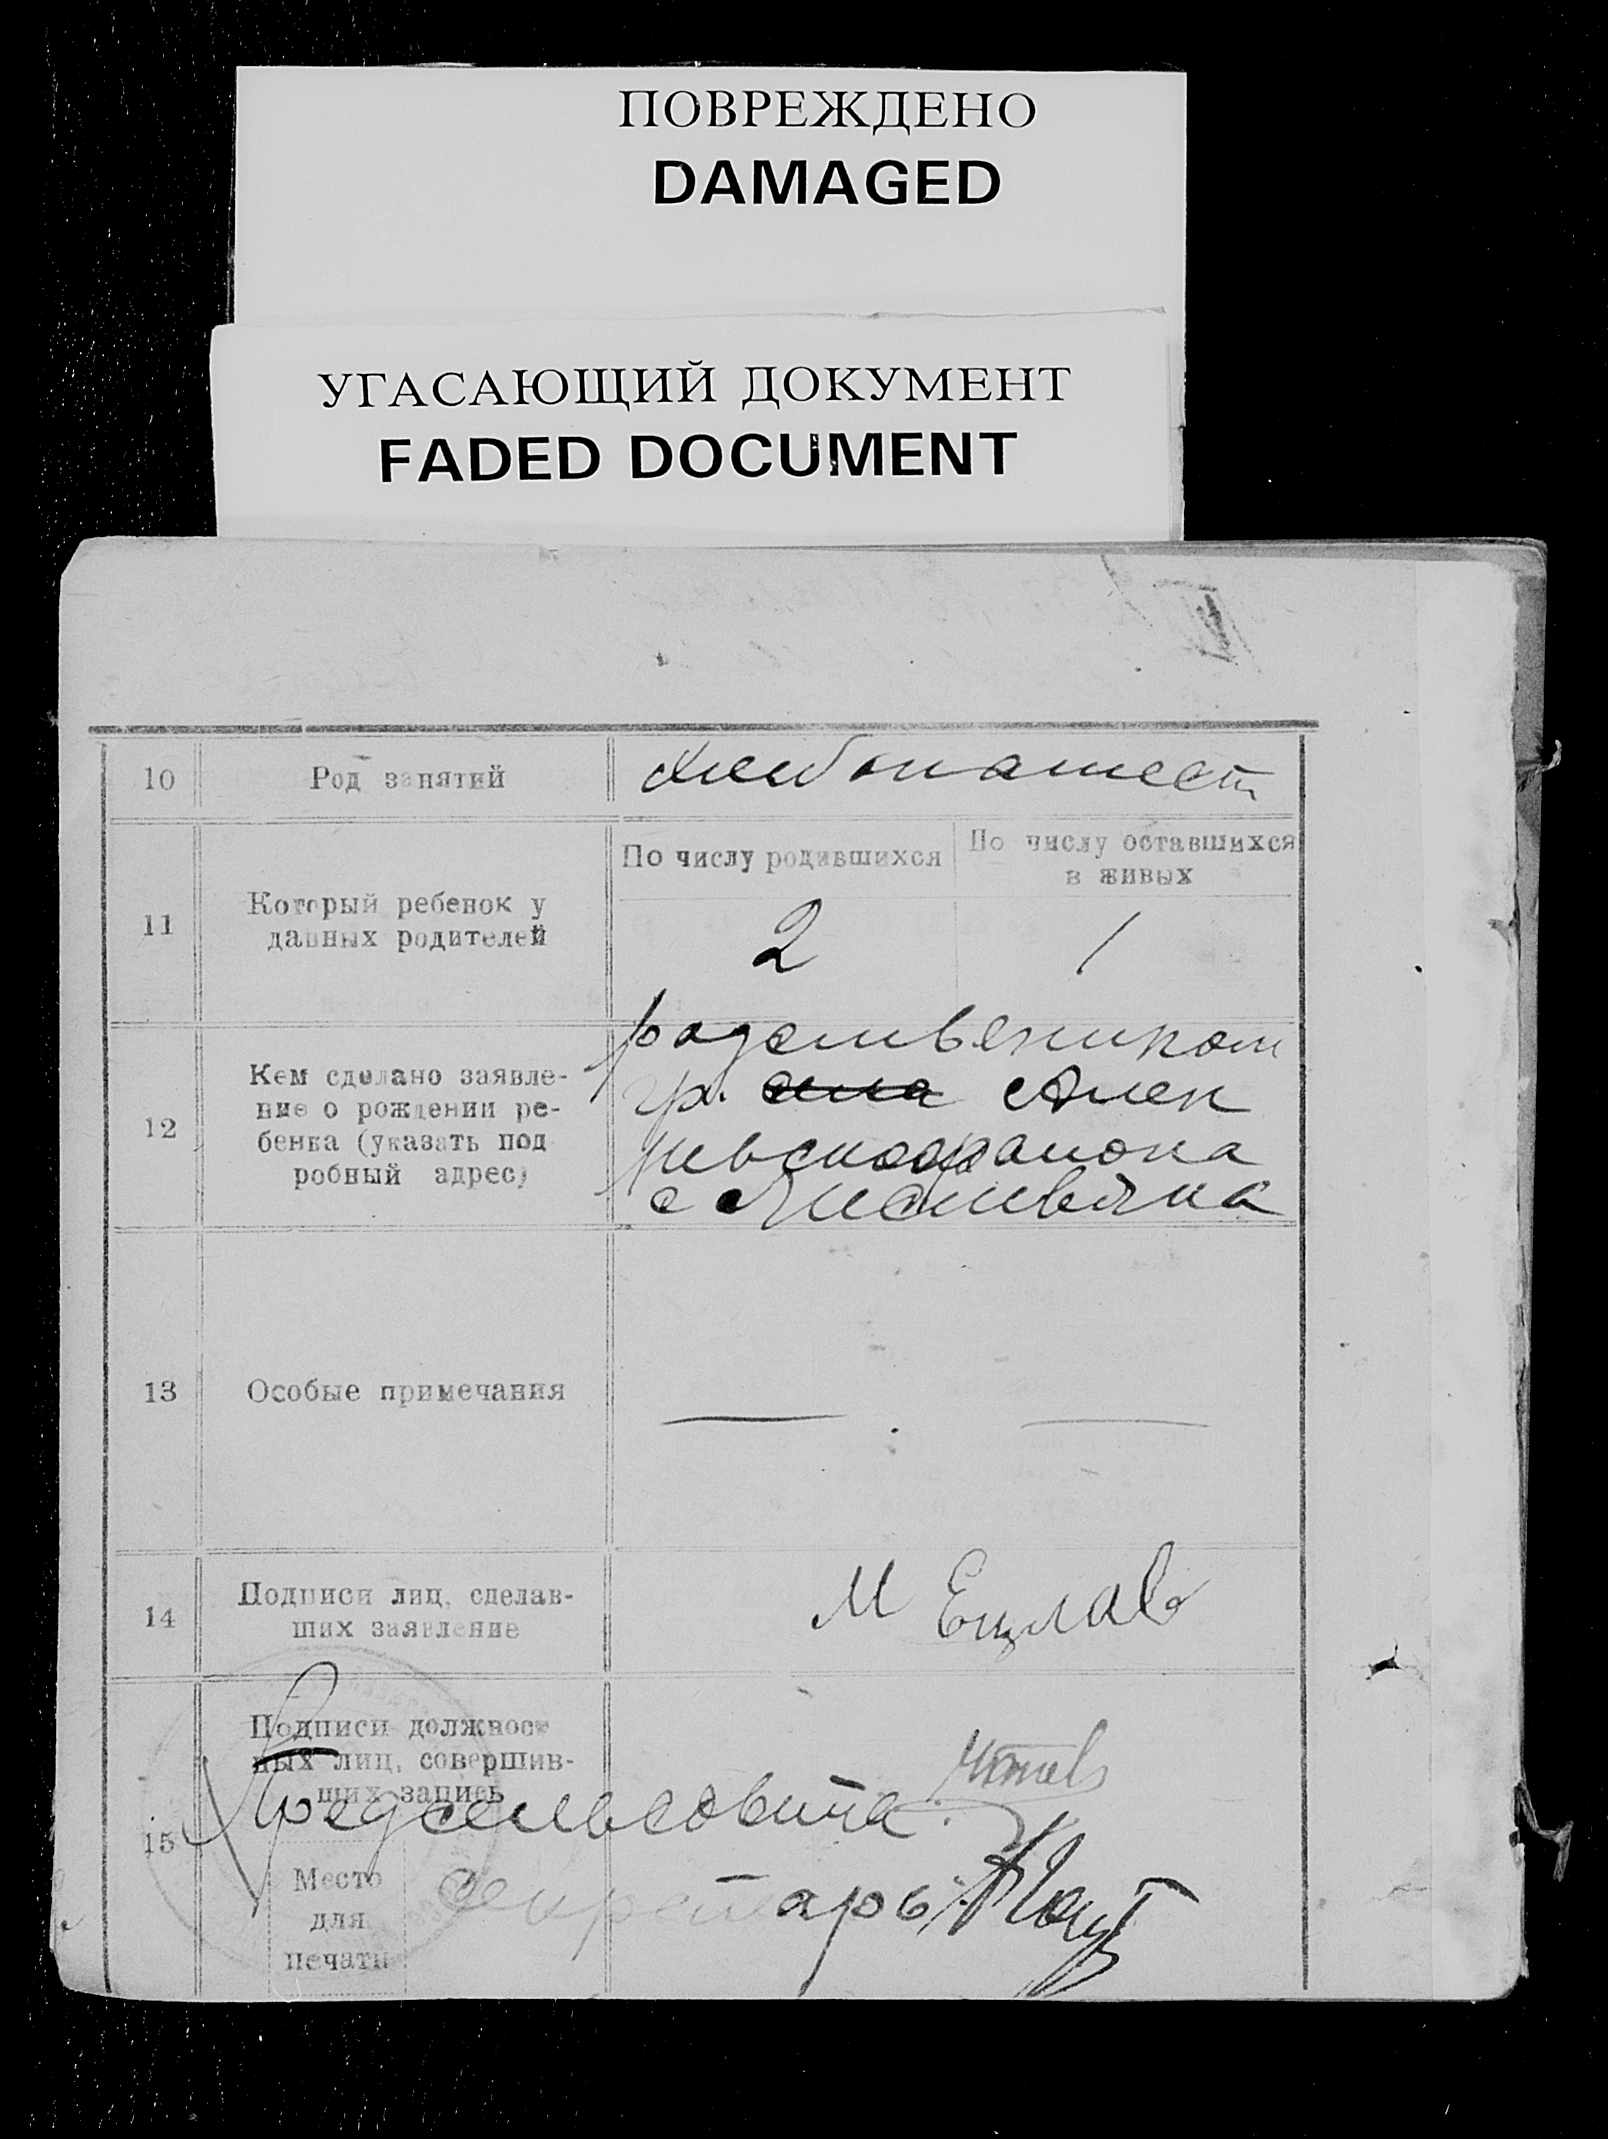 ПОВРЕЖДЕНО
DAMAGED
УГАСАЮЩИЙ ДОКУМЕНТ
FADED DOCUMENT
10 Род занятий хлебопашест
11 Который ребенок у
данных родителей
По числу родившихся
По числу оставшихся
в живых
2 1
12 Кем сделано заявле-
ние о рождении ре-
бенка (указать под
робный адрес)
родственником
гр. Алек
района
с Листвянка
13 Особые примечания
14 Подписи лиц, сделав-
ших заявление
М Ецлав
15 Подписи должност
ных лиц, совершив-
ших запись
Предсельсовита
Место
для
печати
секретарь